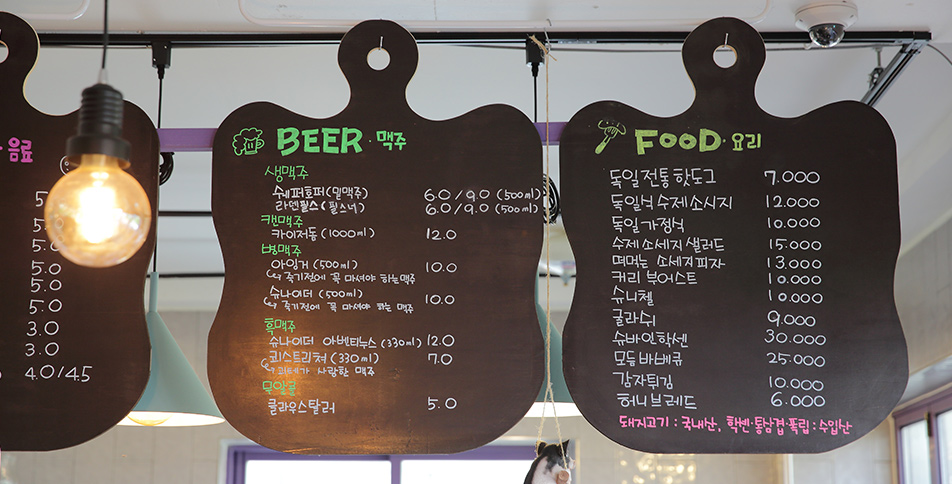 음료
5.0
5.0
5.0
5.0
5.0
5.0
3.0
3.0
4.0/4.5
BEER·맥주
생맥주
쉐퍼호퍼(밀맥주) 6.0/9.0 (500ml)
라덴필스(필스너) 6.0/9.0 (500ml)
캔맥주
카이저돔(1000ml) 12.0
병맥주
아잉거(500ml) 10.0
↳ 죽기전에 꼭 마셔야 하는맥주
슈나이더(500ml) 10.0
↳ 죽기전에 꼭 마셔야 하는 맥주
흑맥주
슈나이더 아벤티누스(330ml) 12.0
쾨스트리쳐(330ml) 7.0
↳ 괴테가 사랑한 맥주
무알콜
클라우스탈러 5.0
FOOD·요리
독일전통핫도그 7.000
독일식 수제소시지 12.000
독일가정식 10.000
수제소세지샐러드 15.000
떠먹는소세지피자 13.000
커리부어스트 10.000
슈니첼 10.000
굴라쉬 9.000
슈바인학센 30.000
모듬바베큐 25.000
감자튀김 10.000
허니브레드 6.000
돼지고기 : 국내산, 학센·통삼겹·폭립 : 수입산